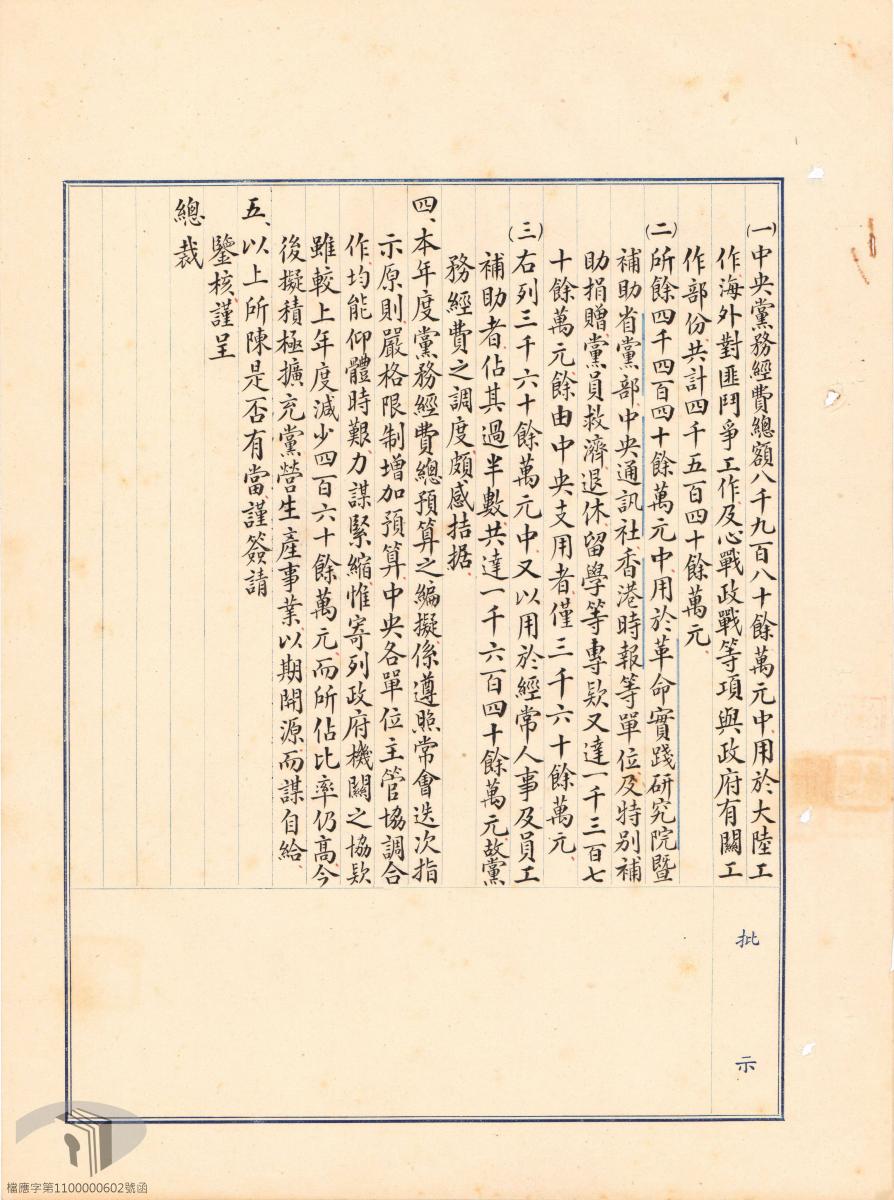 ㈠中央黨務經費總額八千九百八十餘萬元中、用於大陸工
作、海外對匪鬥爭工作、及心戰政戰等項、與政府有關工
作部份、共計四千五百四十餘萬元、
㈡所餘四千四百四十餘萬元中、用於革命實踐研究院暨
補助省黨部、中央通訊社、香港時報等單位、及特別補
助捐贈、黨員救濟退休留學等專款、又達一千三百七
十餘萬元、餘由中央支用者、僅三千六十餘萬元、
㈢右列三千六十餘萬元中、又以用於經常人事及員工
補助者、佔其過半數、共達一千六百四十餘萬元、故黨
務經費之調度、頗感拮据、
四、本年度黨務經費總預算之編擬、係遵照常會迭次指
示原則、嚴格限制增加預算、中央各單位主管、協調合
作、均能仰體時艱、力謀緊縮、惟寄列政府機關之協款、
雖較上年度減少四百六十餘萬元、而所佔比率仍高、今
後擬積極擴充黨營生產事業、以期開源而謀自給、
五、以上所陳、是否有當、謹簽請
鑒核、謹呈
總裁
批示
檔應字第1100000602號函